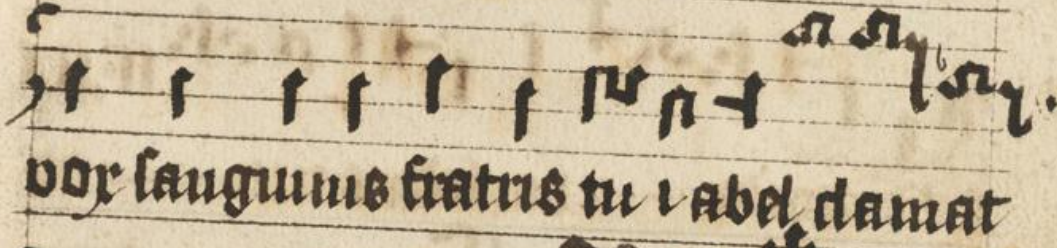 vox sanguinis fratris tui abel clamat